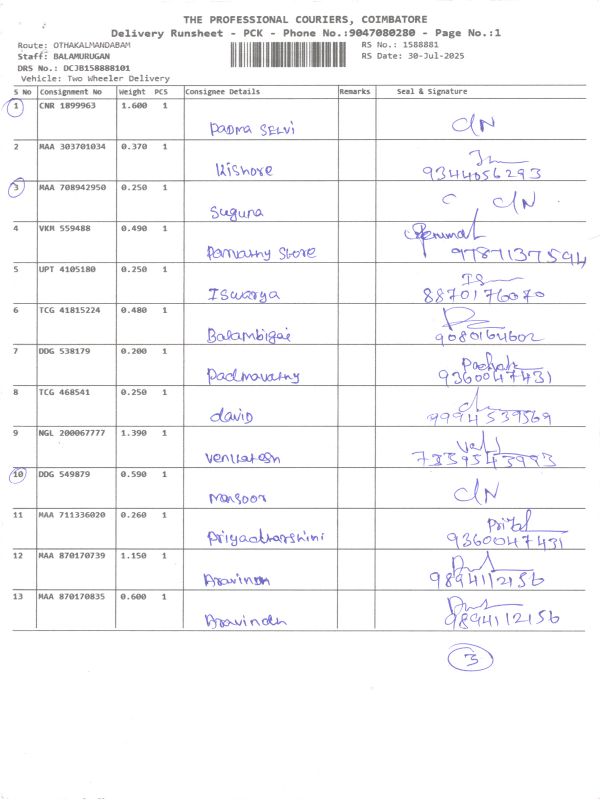 THE PROFESSIONAL COURIERS, COIMBATORE
Delivery Runsheet - PCK - Phone No.:9047080280 - Page No.:1
Route: OTHAKALMANDABAM RS No.: 1588881
Staff: BALAMURUGAN RS Date: 30-Jul-2025
DRS No.: DCJB158888101
Vehicle: Two Wheeler Delivery
S No Consignment No Weight PCS Consignee Details Remarks Seal & Signature
1 CNR 1899963 1.600 1
Padma Selvi C/N
2 MAA 303701034 0.370 1
Kishore 9344056293
3 MAA 708942950 0.250 1
Suguna C/N
4 VKM 559488 0.490 1
Parvathy Store 9787137594
5 UPT 4105180 0.250 1
Iswarya 8870176070
6 TCG 41815224 0.480 1
Balambigai 9080164602
7 DDG 538179 0.200 1
Padmavathy 9360047431
8 TCG 468541 0.250 1
david 9994539569
9 NGL 200067777 1.390 1
Venkatesh
10 DDG 549879 0.590 1
Mansoor C/N
11 MAA 711336020 0.260 1
Priyadharshini 9360047431
12 MAA 870170739 1.150 1
Aravindh 9894112156
13 MAA 870170835 0.600 1
Aravindh 9894112156
3